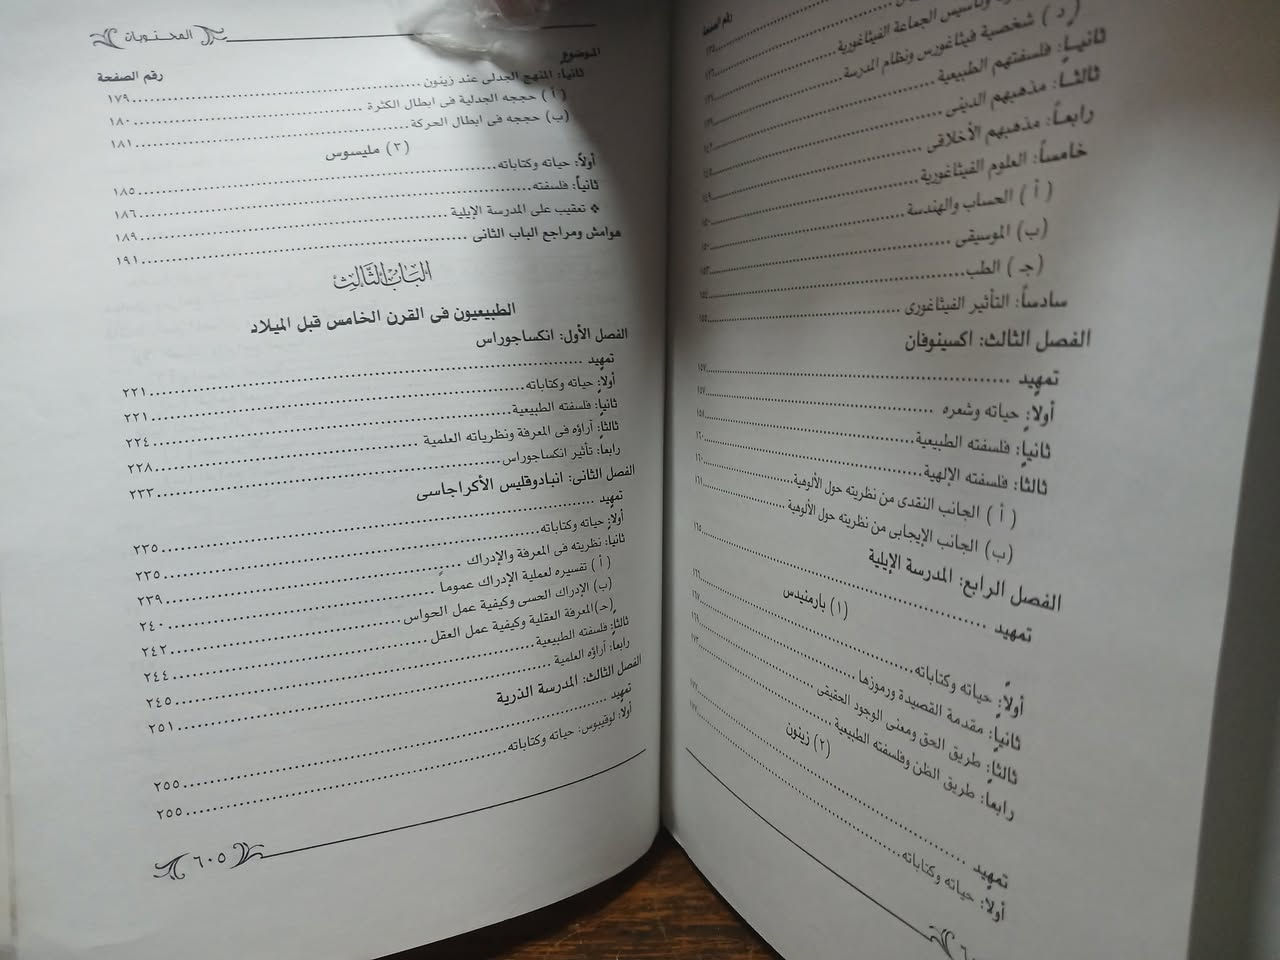 رقم الصفحة
وتأسيس الجماعة الفيثاغورية
(د) شخصية فيثاغورس ونظام المدرسة
ثانياً: فلسفتهم الطبيعية
ثالثاً: مذهبهم الدينى
رابعاً: مذهبهم الأخلاقى
خامساً: العلوم الفيثاغورية
(أ) الحساب والهندسة
(ب) الموسيقى
(جـ) الطب
سادساً: التأثير الفيثاغورى
الفصل الثالث: اكسينوفان
تمهيد ١٥٧
أولاً: حياته وشعره ١٥٧
ثانياً: فلسفته الطبيعية ١٥٨
ثالثاً: فلسفته الإلهية ١٦٠
(أ) الجانب النقدى من نظريته حول الألوهية ١٦٠
(ب) الجانب الإيجابى من نظريته حول الألوهية ١٦١
الفصل الرابع: المدرسة الإيلية
تمهيد ١٦٥
(١) بارمنيدس
أولاً: حياته وكتاباته
ثانياً: مقدمة القصيدة ورموزها
ثالثاً: طريق الحق ومعنى الوجود الحقيقى
رابعاً: طريق الظن وفلسفته الطبيعية
(٢) زينون
تمهيد
أولاً: حياته وكتاباته
المحتويات
الموضوع رقم الصفحة
ثانياً: المنهج الجدلى عند زينون ١٧٩
(أ) حججه الجدلية فى ابطال الكثرة ١٨٠
(ب) حججه فى ابطال الحركة ١٨١
(٣) مليسوس
أولاً: حياته وكتاباته ١٨٥
ثانياً: فلسفته ١٨٦
❖ تعقيب على المدرسة الإيلية ١٨٩
هوامش ومراجع الباب الثانى ١٩١
الباب الثالث
الطبيعيون فى القرن الخامس قبل الميلاد
الفصل الأول: انكساجوراس
تمهيد ٢٢١
أولاً: حياته وكتاباته ٢٢١
ثانياً: فلسفته الطبيعية ٢٢٤
ثالثاً: آراؤه فى المعرفة ونظرياته العلمية ٢٢٨
رابعاً: تأثير انكساجوراس ٢٣٣
الفصل الثانى: انبادوقليس الأكراجاسى
تمهيد ٢٣٥
أولاً: حياته وكتاباته ٢٣٥
ثانياً: نظريته فى المعرفة والإدراك ٢٣٩
(أ) تفسيره لعملية الإدراك عموماً ٢٤٠
(ب) الإدراك الحسى وكيفية عمل الحواس ٢٤٢
(جـ) المعرفة العقلية وكيفية عمل العقل ٢٤٤
ثالثاً: فلسفته الطبيعية ٢٤٥
رابعاً: آراؤه العلمية ٢٥١
الفصل الثالث: المدرسة الذرية
تمهيد ٢٥٥
أولاً: لوقيبوس: حياته وكتاباته ٢٥٥
٦٠٥